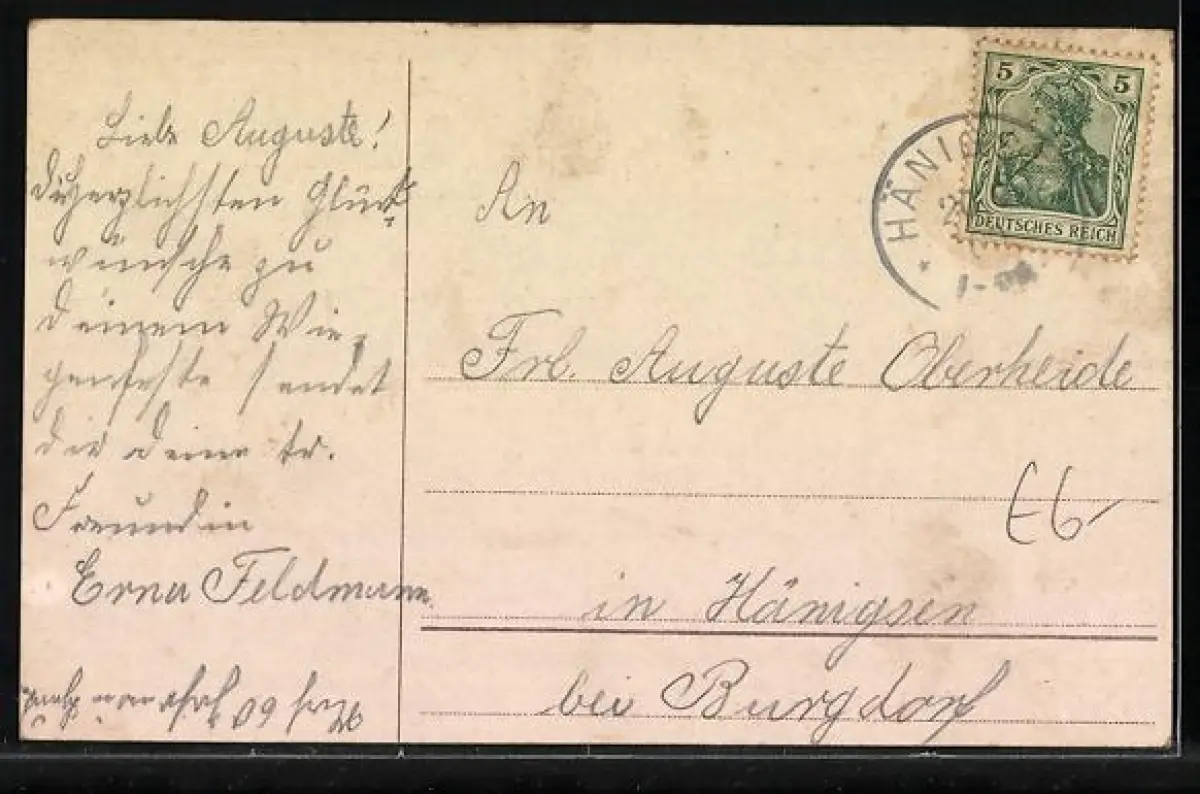 Liebe Auguste!
Die herzlichsten Glück-
wünsche zu
Deinem Wie-
genfeste sendet
dir deine tr.
Freundin
Erna Feldmann.
An
Frl. Auguste Oberheide
in Hänigsen
bei Burgdorf
E6-
5 5
DEUTSCHES REICH
* HÄNIGS